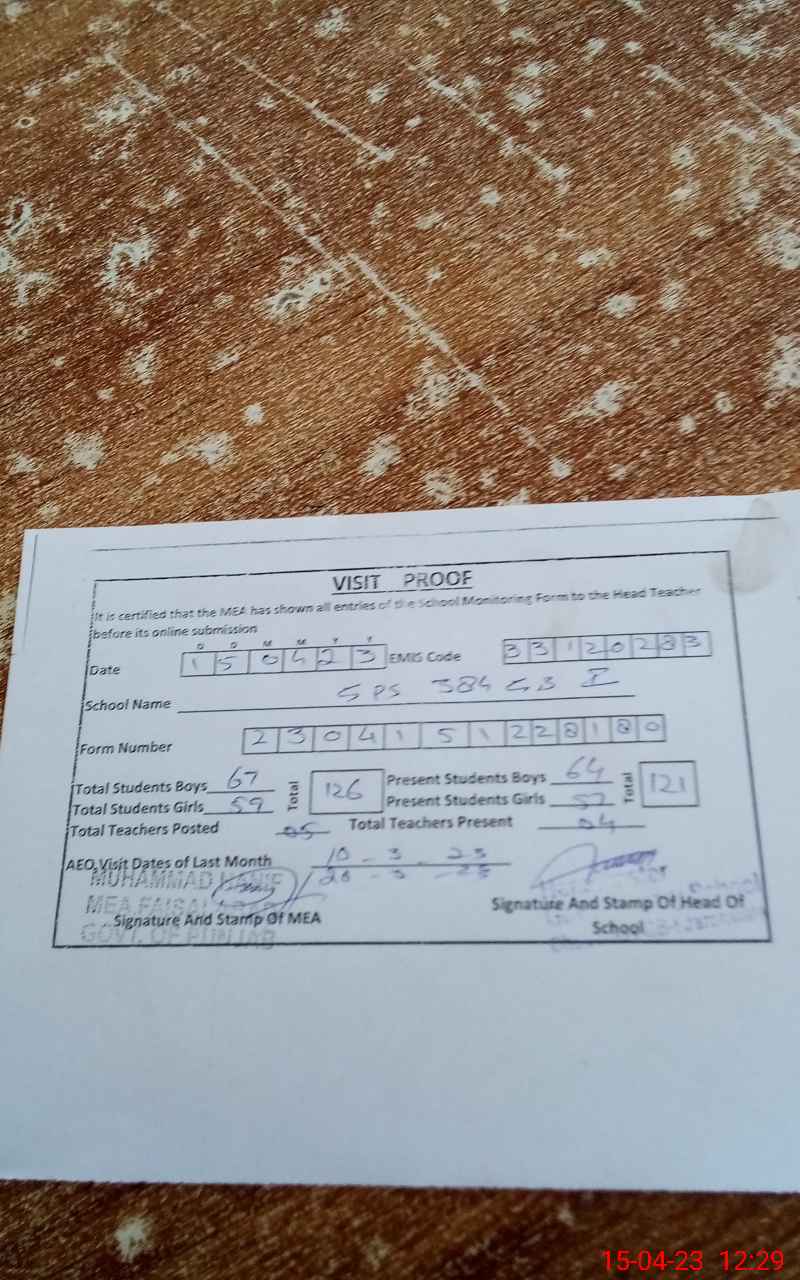 VISIT PROOF
It is certified that the MEA has shown all entries of the School Monitoring Form to the Head Teacher
before its online submission
D D M M Y Y
Date 1 5 0 4 2 3 EMIS Code 3 3 1 2 0 2 3 3
School Name GPS 384 GB I
Form Number 2 3 0 4 1 5 1 2 2 8 1 8 0
Total Students Boys 67 Total 126 Present Students Boys 64 Total 121
Total Students Girls 59 Present Students Girls 57
Total Teachers Posted 05 Total Teachers Present 04
AEO Visit Dates of Last Month 10 - 3 - 23
20 - 3 - 23
MUHAMMAD HANIF
MEA FAISAL
Signature And Stamp Of MEA Signature And Stamp Of Head Of
School
GOVT. OF PUNJAB
15-04-23 12:29